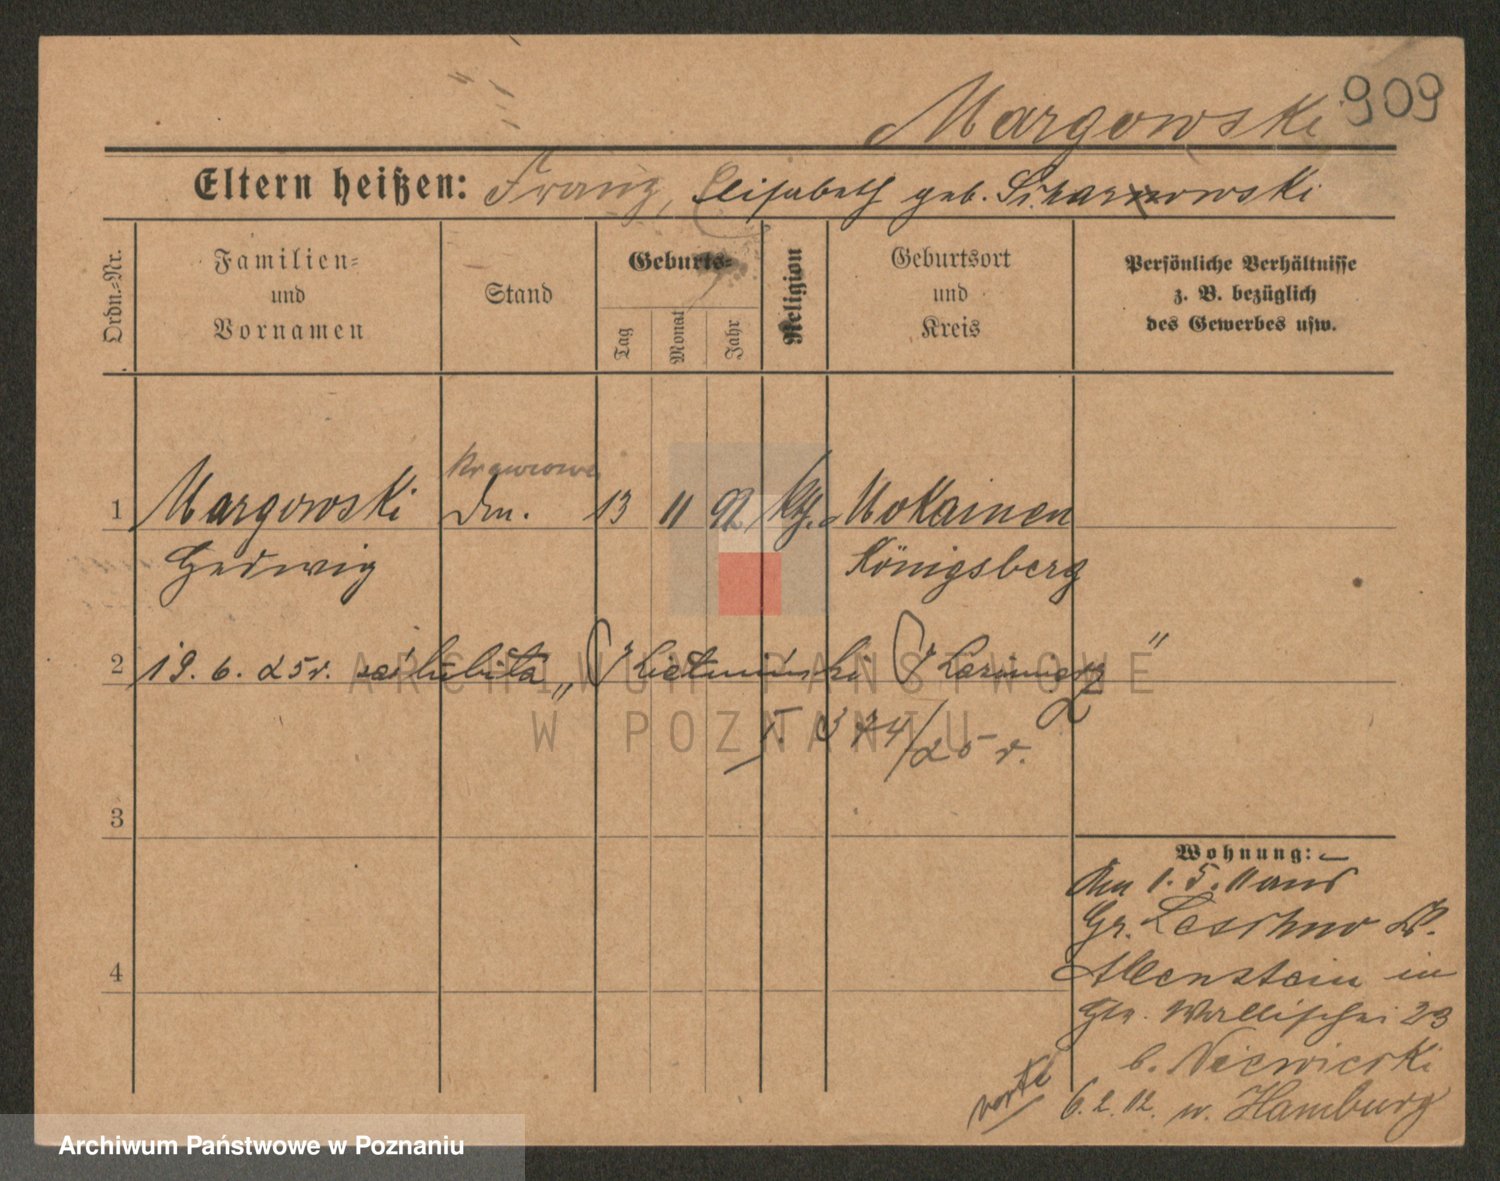 Margowski 909
Eltern heißen: Franz, Elisabeth geb.
Ordn.-Nr.
Familien-
und
Vornamen
Stand
Geburts-
Tag
Monat
Jahr
Religion
Geburtsort
und
Kreis
Persönliche Verhältnisse
z. B. bezüglich
des Gewerbes usw.
Krawcowa
1 Margowski Dm. 13 11 92 Kth. Mokainen
Hedwig Königsberg
2 19. 6. 25 r. Kazimierz "
374/25 r.
3
4
Wohnung:
Am 1. 5. 11 aus
Gr. Leschno Kr.
Allenstein in
Wallischei 23
b. Niewicski
vorhl 6. 2. 12. n. Hamburg
ARCHIWUM PAŃSTWOWE
W POZNANIU
Archiwum Państwowe w Poznaniu